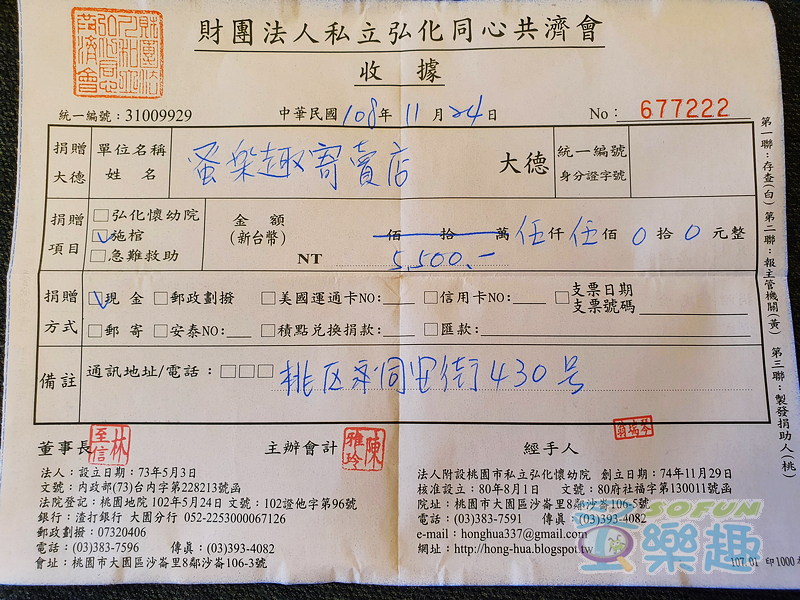 財團法人私立弘化同心共濟會
財團法人私立弘化同心共濟會
收 據
統一編號：31009929
中華民國 108 年 11 月 24 日
No： 677222
捐贈大德
單位名稱
姓 名
蚤樂趣寄賣店 大德
統一編號
身分證字號
捐贈項目
□弘化懷幼院
☑施棺
□急難救助
金 額
(新台幣)
佰 拾 萬 伍 仟 伍 佰 0 拾 0 元整
NT 5,500.-
捐贈方式
☑現 金 □郵政劃撥 □美國運通卡NO: □信用卡NO: □支票日期
支票號碼
□郵 寄 □安泰NO: □積點兌換捐款: □匯款:
備註
通訊地址/電話：□□□ 桃区 同安街430号
董事長 林至信
主辦會計 陳雅玲
經手人
法人：設立日期：73年5月3日
文號：內政部(73)台內字第228213號函
法院登記：桃園地院 102年5月24日 文號：102證他字第96號
銀行：渣打銀行 大園分行 052-2253000067126
郵政劃撥：07320406
電話：(03)383-7596 傳真：(03)393-4082
會址：桃園市大園區沙崙里8鄰沙崙106-3號
法人附設桃園市私立弘化懷幼院 創立日期：74年11月29日
核准設立：80年8月1日 文號：80府社福字第130011號函
院址：桃園市大園區沙崙里8鄰沙崙106-5號
電話：(03)383-7591 傳真：(03)393-4082
e-mail：honghua337@gmail.com
網址：http://hong-hua.blogspot.tw
第一聯：存查(白) 第二聯：報主管機關(黃) 第三聯：製發捐助人(桃)
107.01 印1000本
SOFUN
蚤樂趣